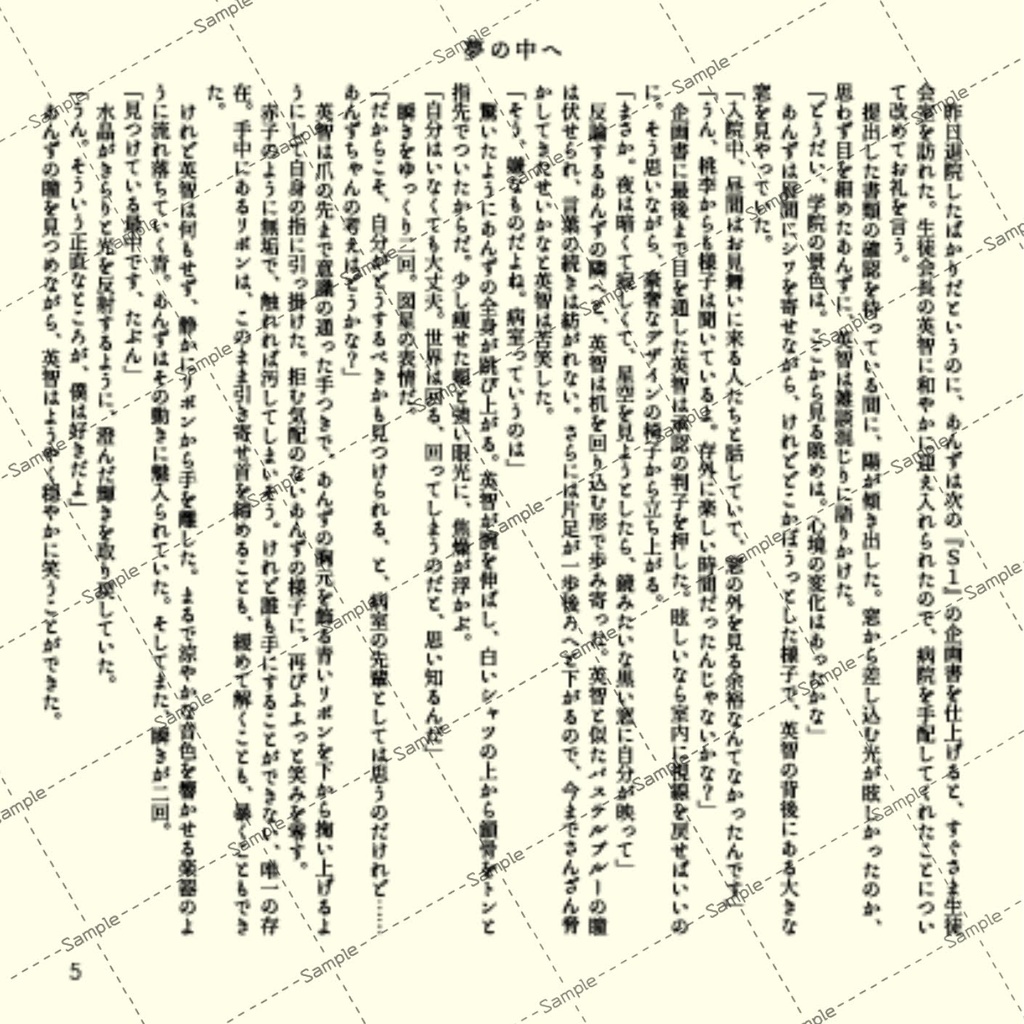 夢の中へ
昨日退院したばかりだというのに、あんずは次の『S1』の企画書を仕上げると、すぐさま生徒
会室を訪れた。生徒会長の英智に和やかに迎え入れられたので、病院を手配してくれたことについ
て改めてお礼を言う。
提出した書類の確認を待っている間に、陽が傾き出した。窓から差し込む光が眩しかったのか、
思わず目を細めたあんずに、英智は雑談混じりに語りかけた。
「どうだい、学院の景色は。ここから見る眺めは。心境の変化はあったかな」
あんずは眉間にシワを寄せながら、けれどどこかぼうっとした様子で、英智の背後にある大きな
窓を見やっていた。
「入院中、昼間はお見舞いに来る人たちと話していて、窓の外を見る余裕なんてなかったんです」
「うん、桃李からも様子は聞いているよ。存外に楽しい時間だったんじゃないかな？」
企画書に最後まで目を通した英智は承認の判子を押した。眩しいなら室内に視線を戻せばいいの
に。そう思いながら、豪奢なデザインの椅子から立ち上がる。
「まさか。夜は暗くて寂しくて、星空を見ようとしたら、鏡みたいな黒い窓に自分が映って」
反論するあんずの隣へと、英智は机を回り込む形で歩み寄った。英智と似たパステルブルーの瞳
は伏せられ、言葉の続きは紡がれない。さらには片足が一歩後ろへと下がるので、今までさんざん脅
かしてきたせいかなと英智は苦笑した。
「そう。嫌なものだよね。病室っていうのは」
驚いたようにあんずの全身が跳び上がる。英智が腕を伸ばし、白いシャツの上から鎖骨をトンと
指先でついたからだ。少し痩せた頬と強い眼光に、焦燥が浮かぶ。
「自分はいなくても大丈夫。世界は回る、回ってしまうのだと、思い知るんだ」
瞬きをゆっくり二回。図星の表情だ。
「だからこそ、自分がどうするべきかも見つけられる、と、病室の先輩としては思うのだけれど……
あんずちゃんの考えはどうかな？」
英智は爪の先まで意識の通った手つきで、あんずの胸元を飾る青いリボンを下から掬い上げるよ
うにして自身の指に引っ掛けた。拒む気配のないあんずの様子に、再びふふっと笑みを零す。
赤子のように無垢で、触れれば汚してしまいそう。けれど誰も手にすることができない、唯一の存
在。手中にあるリボンは、このまま引き寄せ首を絞めることも、緩めて解くことも、暴くこともでき
た。
けれど英智は何もせず、静かにリボンから手を離した。まるで涼やかな音色を響かせる楽器のよ
うに流れ落ちていく青。あんずはその動きに魅入られていた。そしてまた、瞬きが二回。
「見つけている最中です、たぶん」
水晶がきらりと光を反射するように、澄んだ輝きを取り戻していた。
「うん。そういう正直なところが、僕は好きだよ」
あんずの瞳を見つめながら、英智はようやく穏やかに笑うことができた。
5